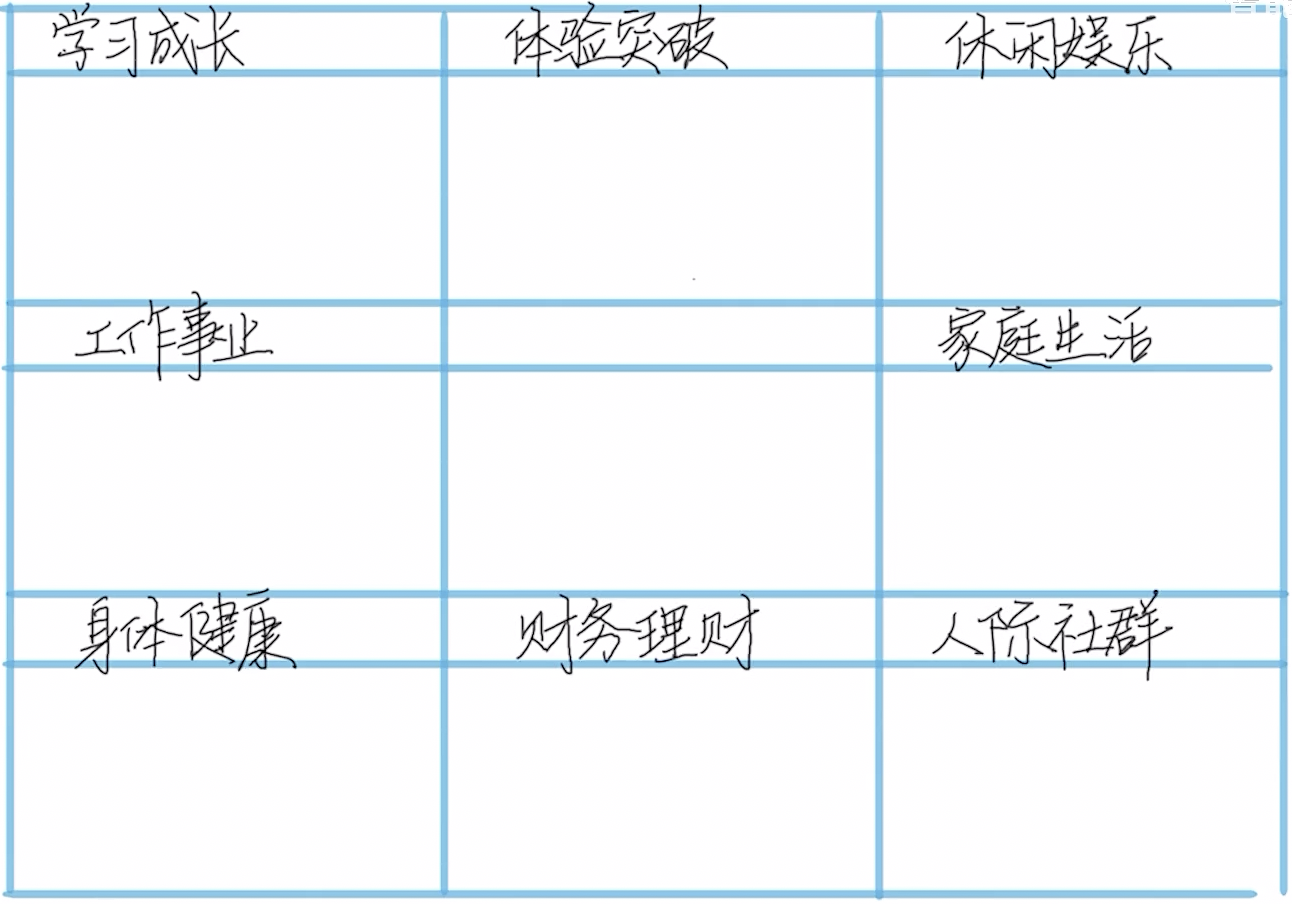 学习成长
体验突破
休闲娱乐
工作事业
家庭生活
身体健康
财务理财
人际社群